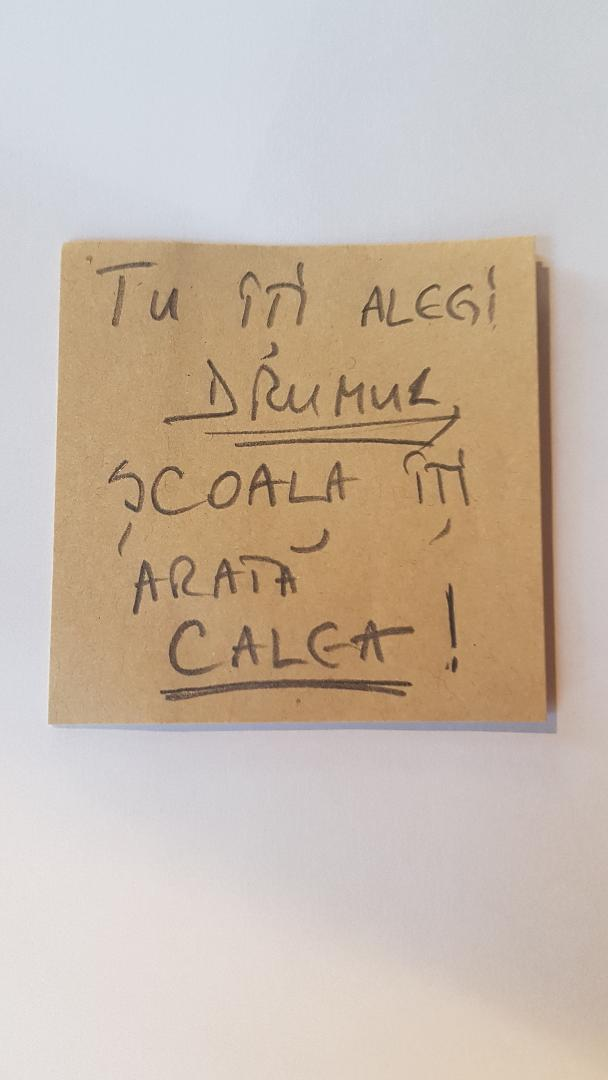 Tu ÎȚI ALEGI
DRUMUL
ȘCOALA ÎȚI
ARATĂ
CALEA !